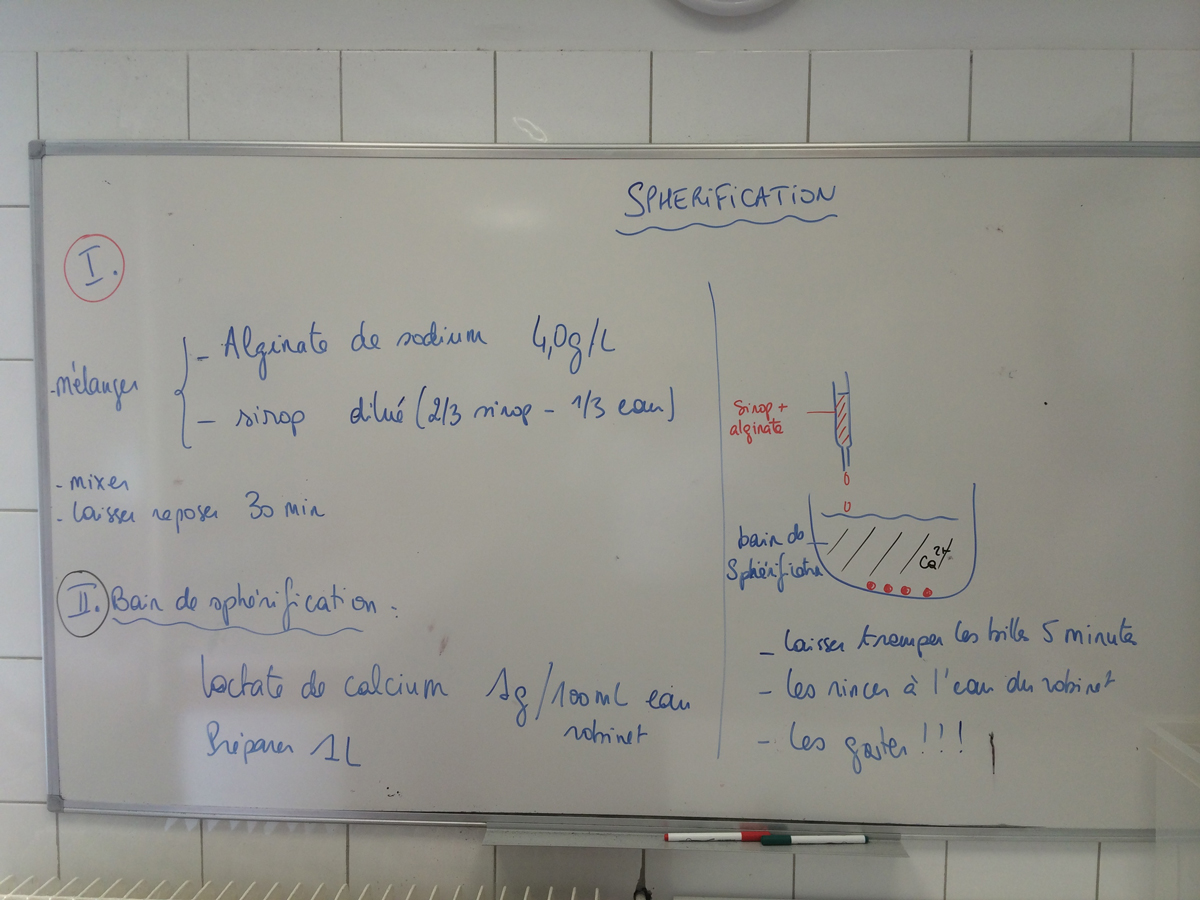 SPHERIFICATION
I.
- mélanger
- Alginate de sodium 4,0g/L
- sirop dilué (2/3 sirop - 1/3 eau)
- mixer
- laisser reposer 30 min
II. Bain de sphérification :
Lactate de calcium 1g/100mL eau
robinet
Préparer 1L
sirop +
alginate
bain de
Sphérification
Ca2+
- laisser tremper les billes 5 minutes
- les rincer à l'eau du robinet
- les goûter !!!